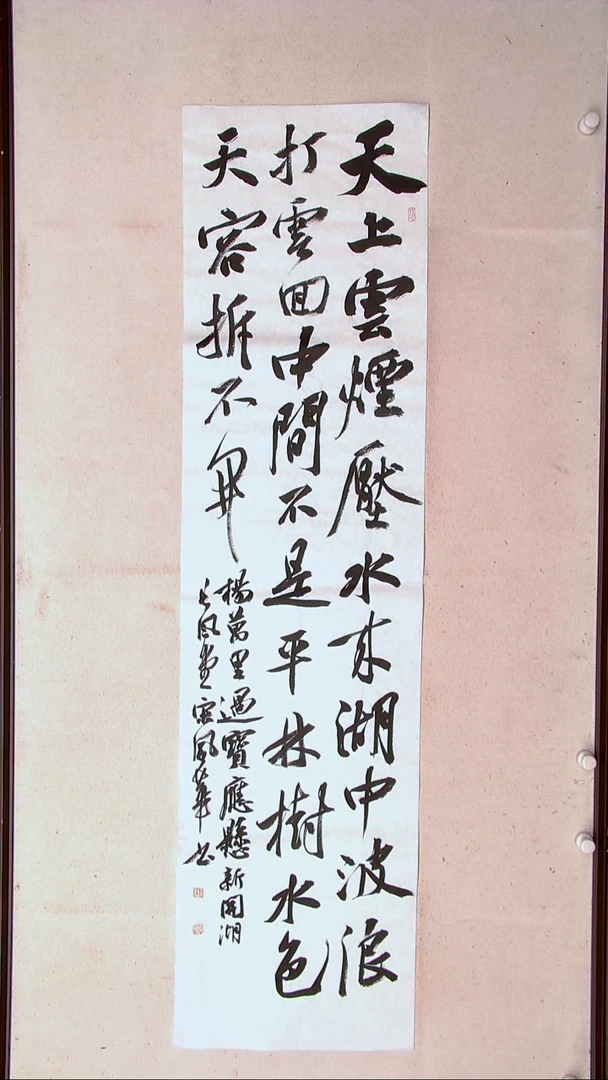 天上雲煙壓水来湖中波浪
打雲囬中間不是平林樹水色
天容拆不開
楊萬里過寶應懸新開湖
風堂宋風華书